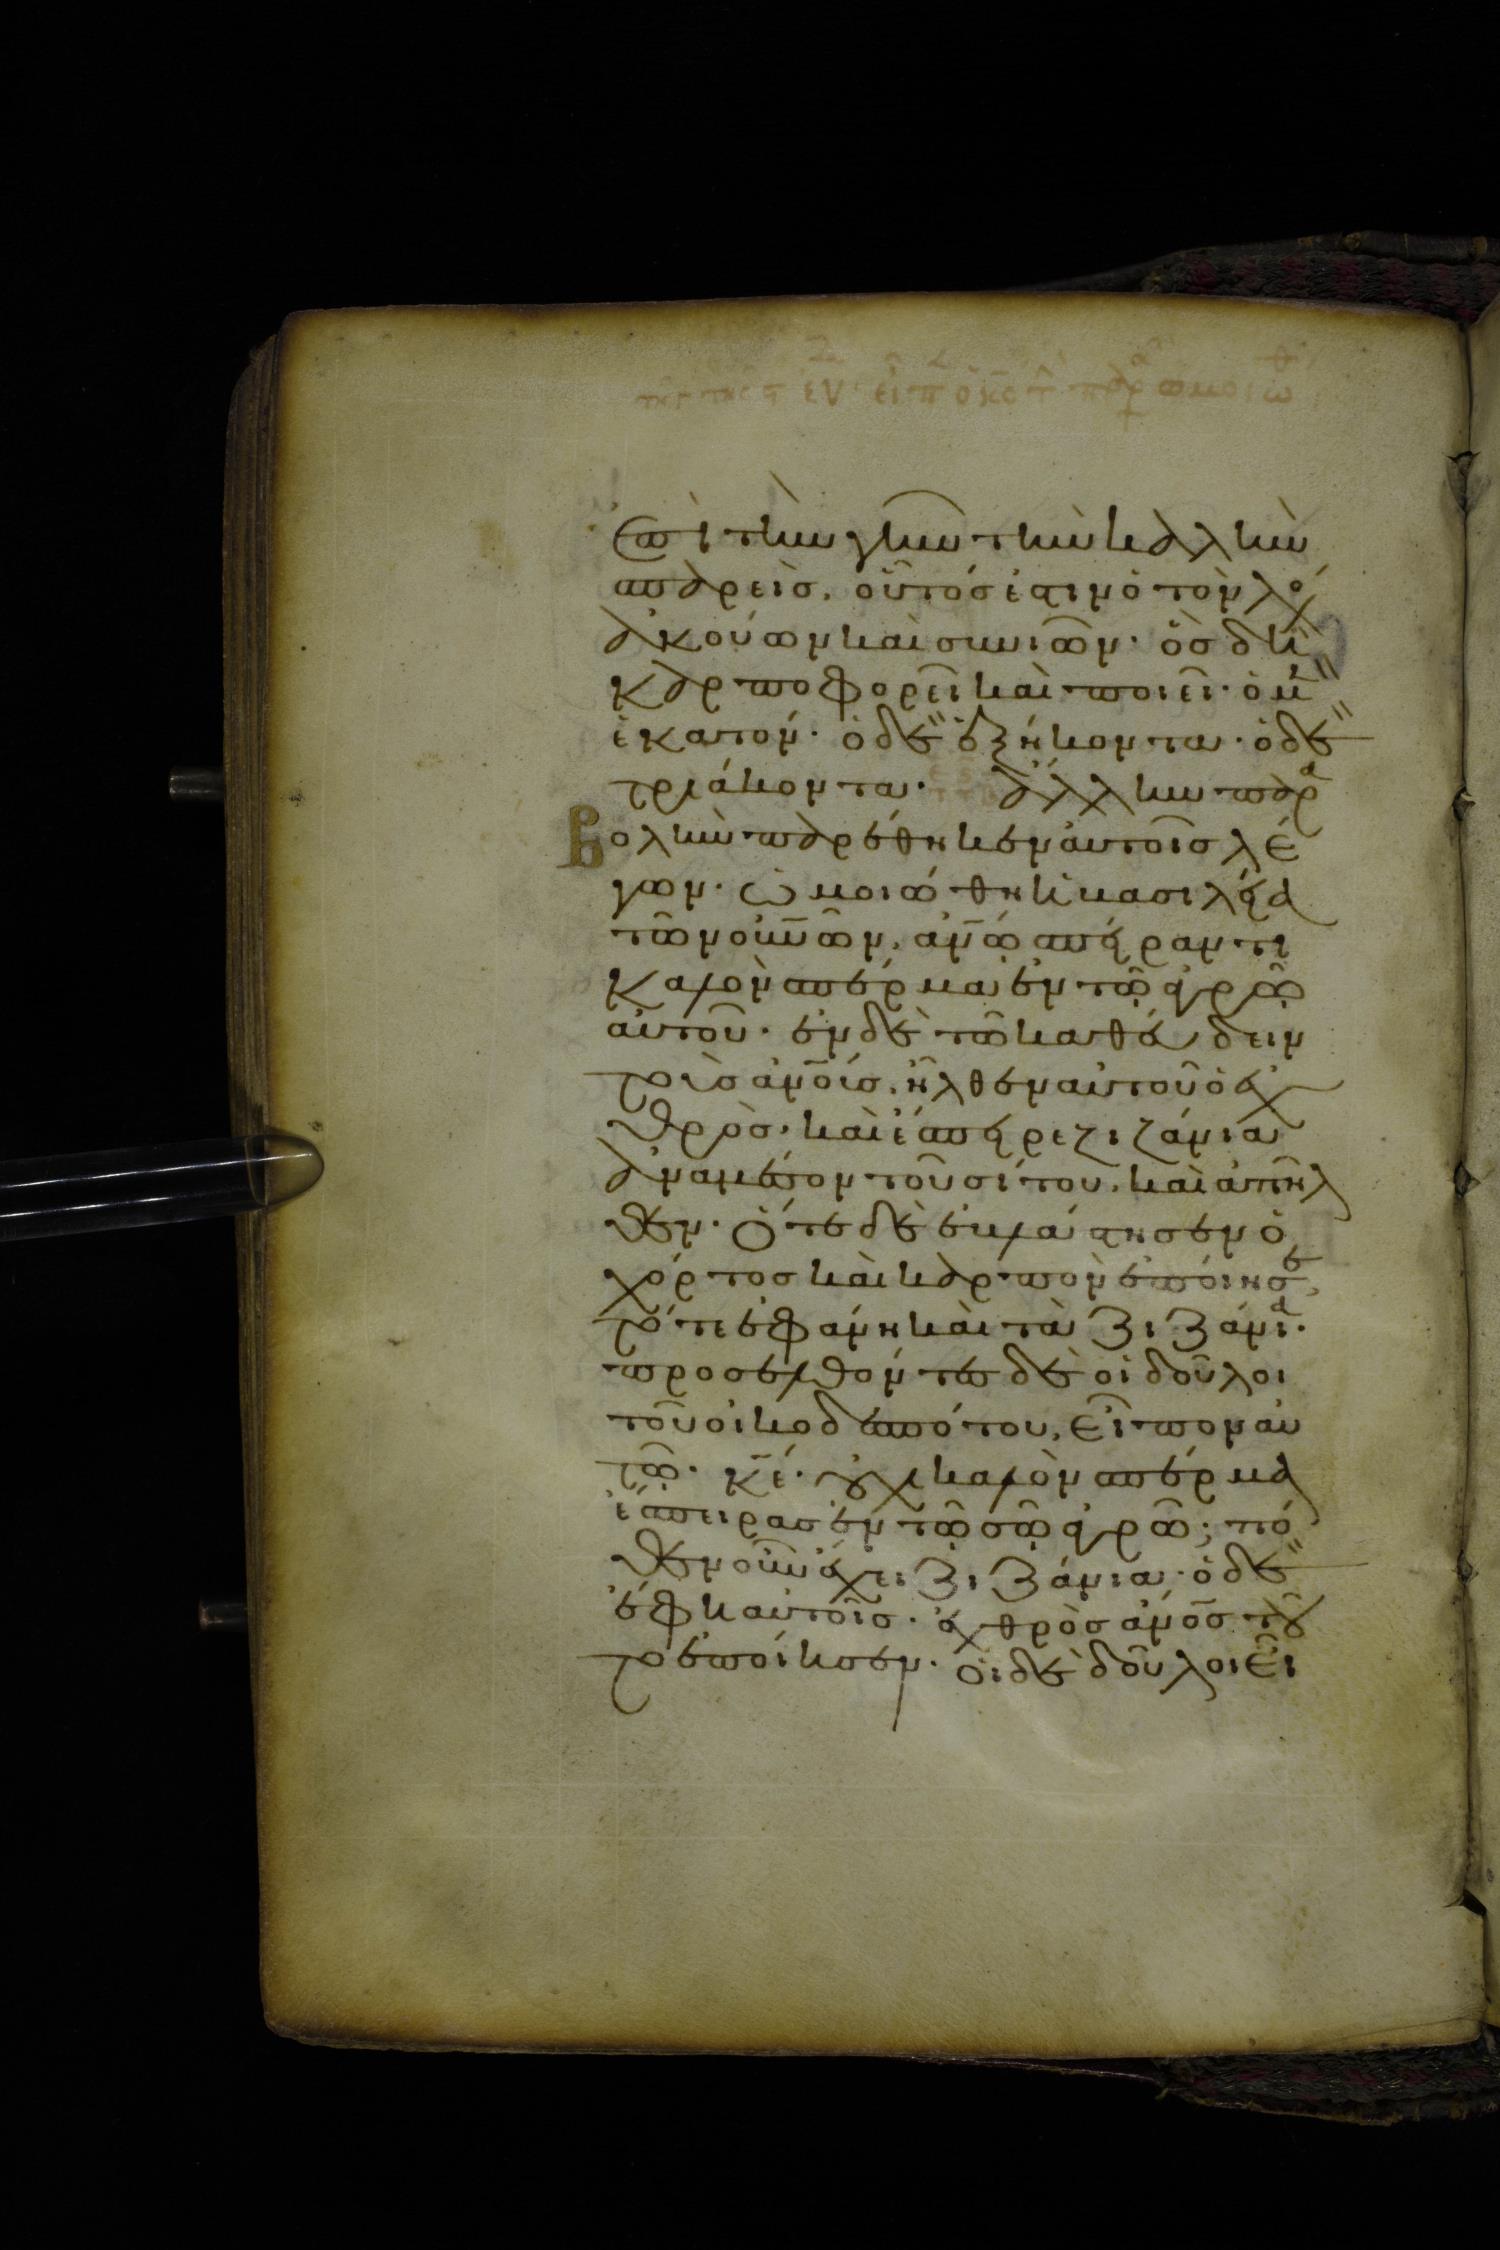 ἐπὶ τὴν γῆν τὴν καλὴν
σπαρεὶς. οὗτός ἐστιν ὁ τὸν λό
ἀκούων καὶ συνιῶν· ὃς δὴ
καρποφορεῖ καὶ ποιεῖ· ὁ μ
ἑκατόν· ὁ δὲ ἑξήκοντα· ὁ δὲ
τριάκοντα· ἄλλην παρα
βολὴν παρέθηκεν αὐτοῖς λέ
γων· ὡμοιώθη ἡ βασιλεία
τῶν οὐνῶν. ἀνω σπείραντι
καλὸν σπέρμα ἐν τῷ ἀγρῷ
αὐτοῦ· ἐν δὲ τῶ καθεύδειν
τοὺς ἀνοὺς. ἦλθεν αὐτοῦ ὁ ἐχ
θρὸς· καὶ ἔσπειρε ζιζάνια
ἀναμέσον τοῦ σίτου. καὶ ἀπῆλ
θεν· Ὅτε δὲ ἐβλάστησεν ὁ
χόρτος καὶ καρπὸν ἐποίησε,
τότε ἐφάνη καὶ τὰ ζιζάνια·
προσελθόντες δὲ οἱ δοῦλοι
τοῦ οἰκοδεσπότου, εἶπον αὐ
τῶ· κε· οὐχὶ καλὸν σπέρμα
ἔσπειρας ἐν τῷ σῷ ἀγρῶ; πό
θεν οὖν ἔχει ζιζάνια· ὁ δὲ
ἔφη αὐτοῖς· ἐχθρὸς ἀνος τοῦ
το ἐποίησεν· οἱ δὲ δοῦλοι εἶ